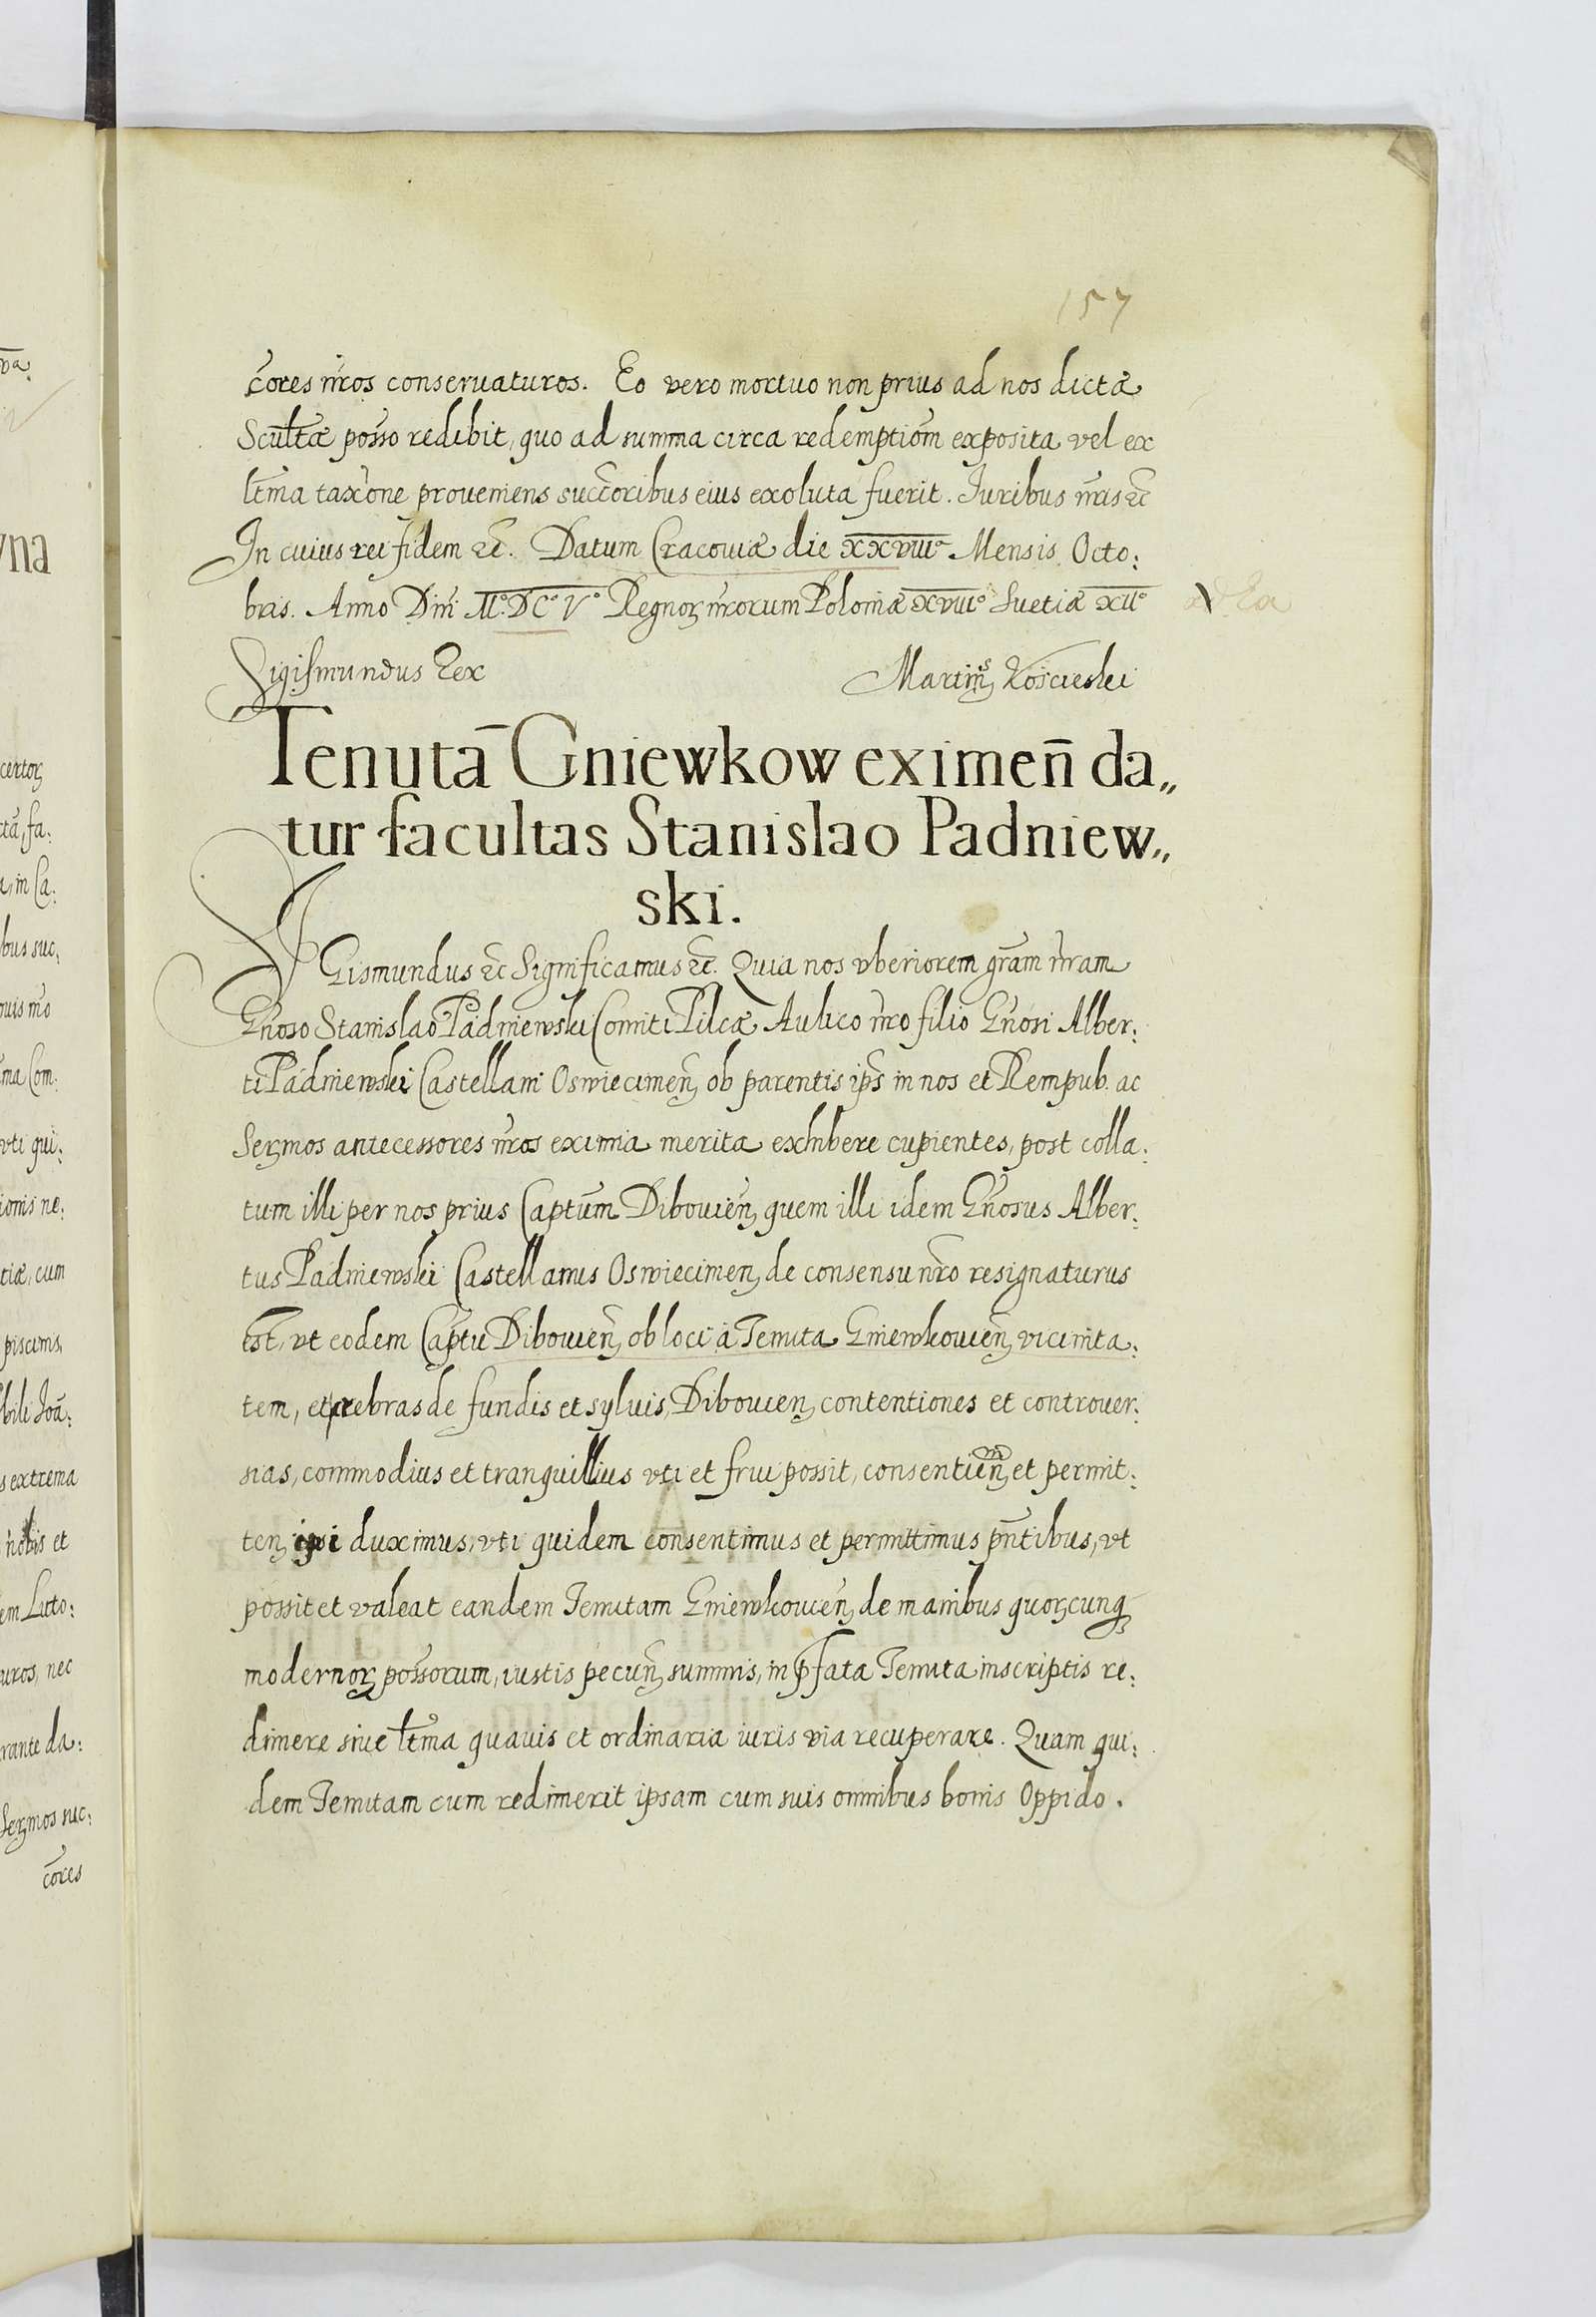 157
cores nros conseruaturos. Eo vero mortuo non prius ad nos dictæ
Scultæ posso redibit, quo ad summa circa redemptiom exposita vel ex
ltma taxone proueniens succoribus eius exoluta fuerit. Iuribus nris &c
In cuius rei fidem &c. Datum Cracouiæ die XXVIIIº Mensis Octo:
bris. Anno Dni Mº.DCº Vº Regnoꝝ nrorum Poloniæ XVIIIº Suetiæ XIIº
Sigismundus Rex
Martinꝰ Koscieski
Tenutā Gniewkow eximen̄ da„
tur facultas Stanislao Padniew„
ski.
SIGismundus &c Significamus &c. Quia nos vberiorem gram nram
Gnoso Stanislao Padniewski Comiti Pilcæ Aulico nro filio Gnosi Alber:
ti Padniewski Castellani Oswiecimen̄ ob parentis ips in nos et Rempub. ac
Serꝫmos antecessores nros eximia merita exhibere cupientes, post colla:
tum illi per nos prius Captum Dibouien̄ quem illi idem Gnosus Alber:
tus Padniewski Castellanus Oswiecimen̄ de consensu nro resignaturus
est, vt eodem Captu Dibouien̄ ob loci à Tenuta Gniewkouien̄ vicinita:
tem, et crebras de fundis et syluis Dibouien̄ contentiones et controuer:
sias, commodius et tranquillius vti et frui possit, consentien̄ et permit:
ten̄ ipsi duximus, vti quidem consentimus et permittimus pntibus, vt
possit et valeat eandem Tenutam Gniewkouien̄ de manibus quoꝝcunq
modernoꝝ possorum, iustis pecun̄ summis, in pfata Tenuta inscriptis re:
dimere siue ltma quauis et ordinaria iuris via recuperare. Quam qui:
dem Tenutam cum redimerit ipsam cum suis omnibus bonis Oppido.